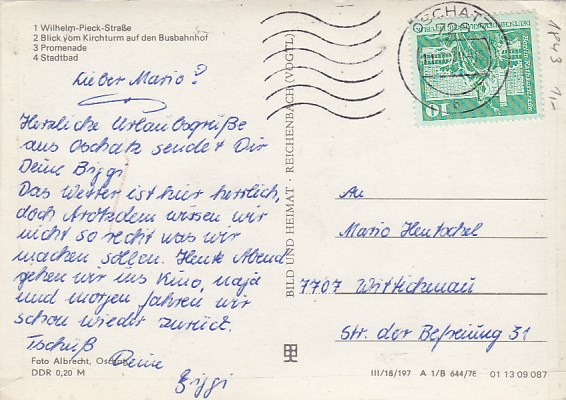 1 Wilhelm-Pieck-Straße
2 Blick vom Kirchturm auf den Busbahnhof
3 Promenade
4 Stadtbad
Lieber Mario!
Herzliche Urlaubsgrüße
aus Oschatz sendet Dir
Deine Biggi
Das Wetter ist hier herrlich,
doch trotzdem wissen wir
nicht so recht was wir
machen sollen. Heute Abend
gehen wir ins Kino, naja
und morgen fahren wir
schon wieder zurück.
Tschüß
Deine
Biggi
Foto Albrecht, Oschatz
DDR 0,20 M
BILD UND HEIMAT · REICHENBACH (VOGTL)
OSCHATZ
726
10
1843
1,-
An
Mario Hentschel
7707 Wittichenau
Str. der Befreiung 31
III/18/197 A 1/B 644/78 01 13 09 087